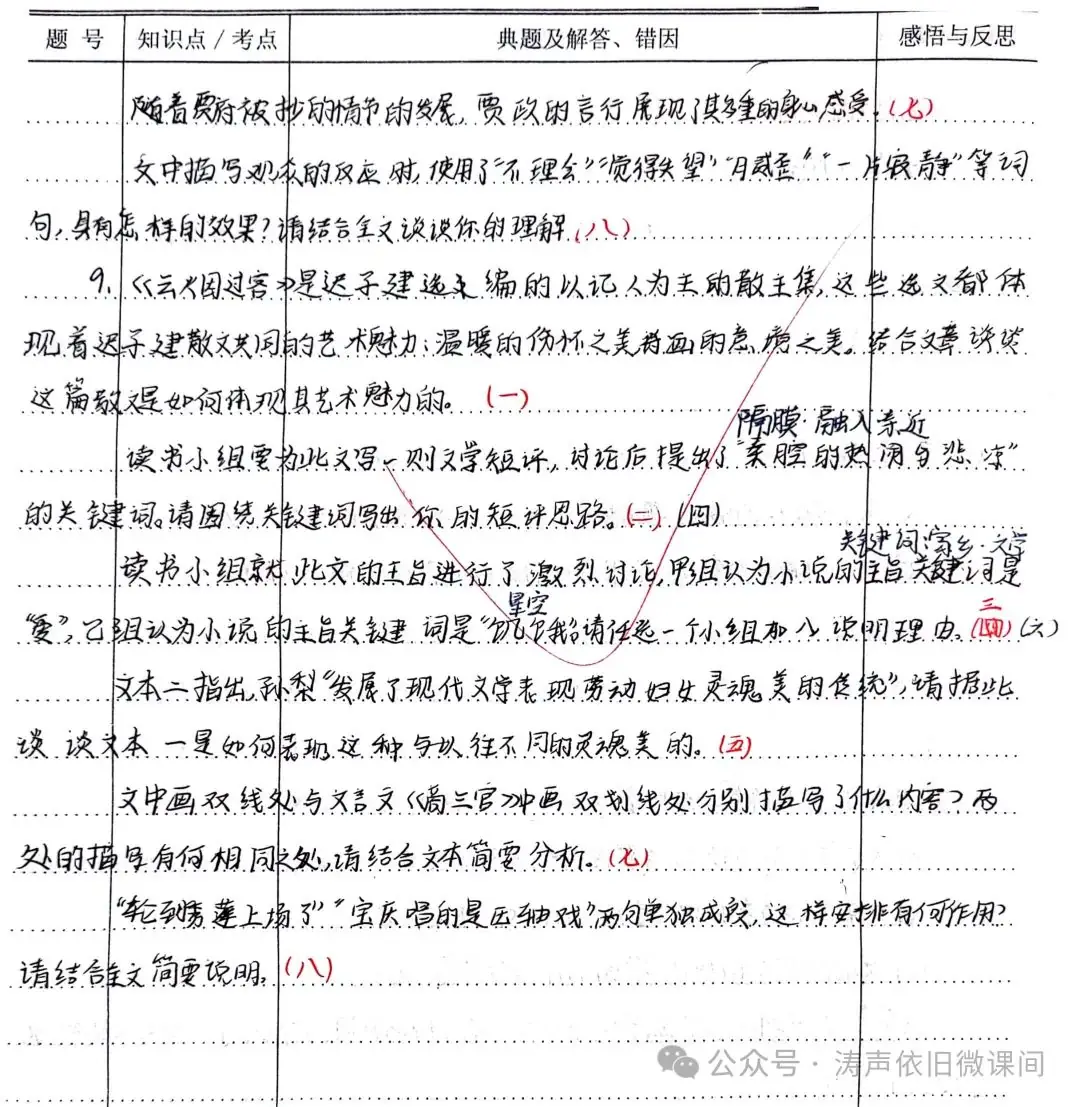 题 号 知识点/考点 典题及解答、错因 感悟与反思
随着贾府被抄的情节的发展,贾政的言行展现了其多重的身心感受。(七)
文中描写观众的反应时,使用了“不理会”“觉得失望”“一片寂静”等词
句,具有怎样的效果?请结合全文谈谈你的理解。(八)
9.《云烟过客》是迟子建选主编的以记人为主的散文集,这些选文都体
现着迟子建散文共同的艺术魅力:温暖的伤怀之美 的意境之美。结合文章谈谈
这篇散文是如何体现其艺术魅力的。(一)
隔膜·融入亲近
读书小组要为此文写一则文学短评,讨论后提出了“秦腔的热闹与悲凉”
的关键词。请围绕关键词写出你的短评思路。(二)(四)
关键词:家乡·文学
读书小组就此文的主旨进行了激烈讨论,甲组认为小说的主旨关键词是
星空
“爱”,乙组认为小说的主旨关键词是“饥饿”请任选一个小组加入,说明理由。(四)三(六)
文本二指出,孙犁“发展了现代文学表现劳动妇女灵魂美的传统”,请据此
谈谈文本一是如何表现这种与以往不同的灵魂美的。(五)
文中画双线处与文言文《 三官》中画双划线处分别描写了什么内容?两
处的描写有何相同之处,请结合文本简要分析。(七)
“轮到秀莲上场了”“宝庆唱的是压轴戏”两句单独成段,这样安排有何作用?
请结合全文简要说明。(八)
公众号·涛声依旧微课间